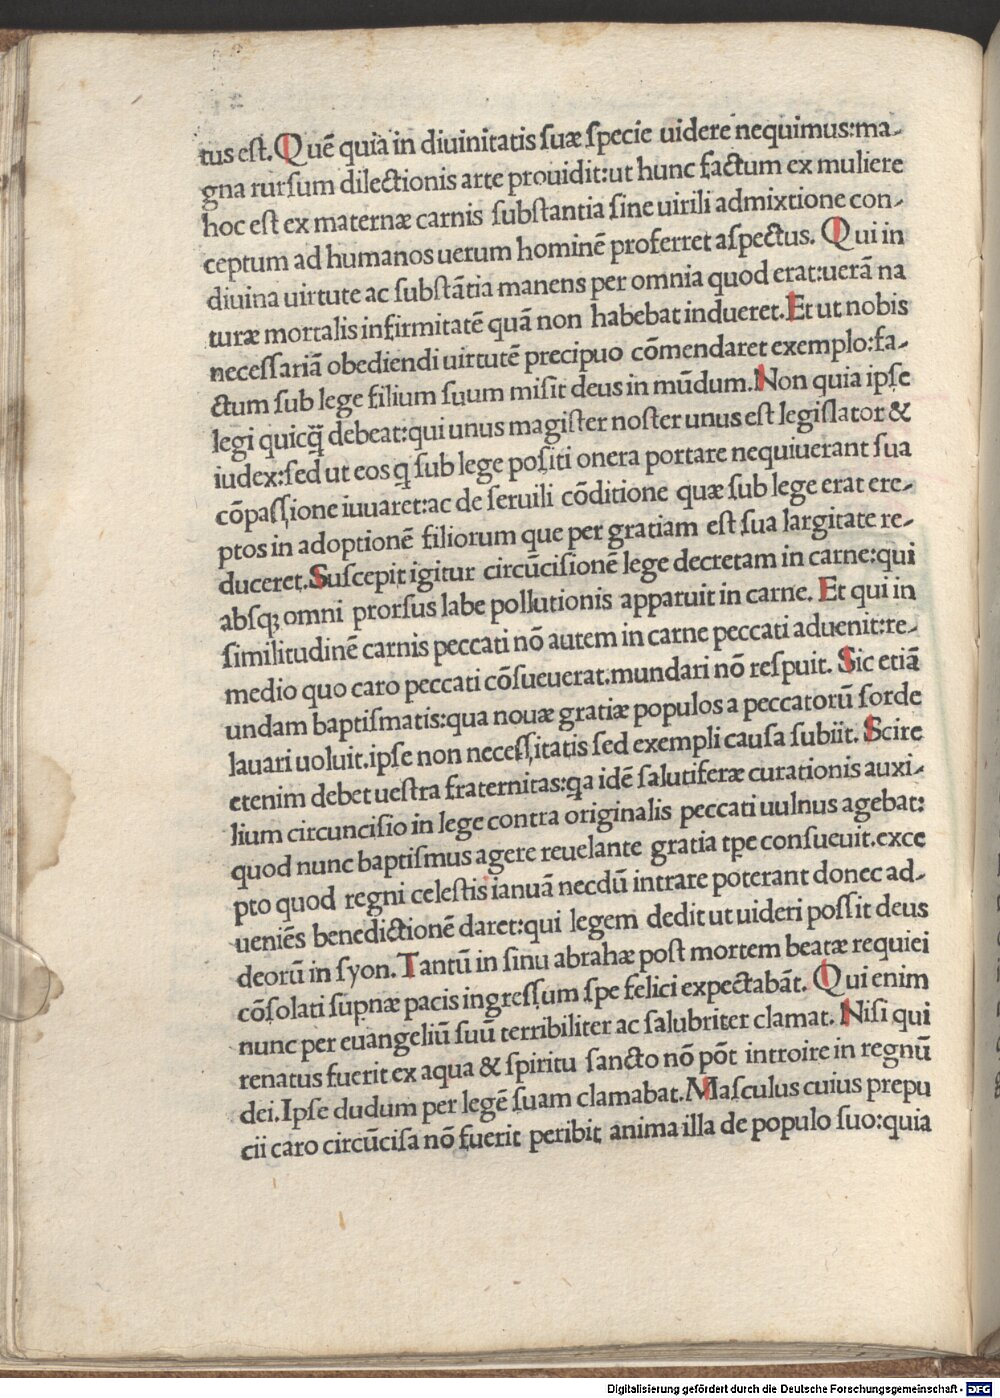 tus est. Quē quia in diuinitatis suæ specie uidere nequimus:ma-
gna rursum dilectionis arte prouidit:ut hunc factum ex muliere
hoc est ex maternæ carnis substantia sine uirili admixtione con-
ceptum ad humanos uerum hominē proferret aspectus. Qui in
diuina uirtute ac substātia manens per omnia quod erat:uerā na
turæ mortalis infirmitatē quā non habebat indueret. Et ut nobis
necessariā obediendi uirtutē precipuo cōmendaret exemplo:fa-
ctum sub lege filium suum misit deus in mūdum. Non quia ipse
legi quicq̄ debeat:qui unus magister noster unus est legislator &
iudex:sed ut eos q̄ sub lege positi onera portare nequiuerant sua
cōpassione iuuaret:ac de seruili cōditione quæ sub lege erat ere-
ptos in adoptionē filiorum que per gratiam est sua largitate re-
duceret. Suscepit igitur circūcisionē lege decretam in carne:qui
absq; omni prorsus labe pollutionis apparuit in carne. Et qui in
similitudinē carnis peccati nō autem in carne peccati aduenit:re-
medio quo caro peccati cōsueuerat.mundari nō respuit. Sic etiā
undam baptismatis:qua nouæ gratiæ populos a peccatorū sorde
lauari uoluit.ipse non necessitatis sed exempli causa subiit. Scire
etenim debet uestra fraternitas:qa idē salutiferæ curationis auxi-
lium circuncisio in lege contra originalis peccati uulnus agebat:
quod nunc baptismus agere reuelante gratia tp̄e consueuit.exce
pto quod regni celestis ianuā necdū intrare poterant donec ad-
ueniēs benedictionē daret:qui legem dedit ut uideri possit deus
deorū in syon. Tantū in sinu abrahæ post mortem beatæ requiei
cōsolati supnæ pacis ingressum spe felici expectabāt. Qui enim
nunc per euangeliū suū terribiliter ac salubriter clamat. Nisi qui
renatus fuerit ex aqua & spiritu sancto nō pōt introire in regnū
dei. Ipse dudum per legē suam clamabat. Masculus cuius prepu
cii caro circūcisa nō fuerit peribit anima illa de populo suo:quia
Digitalisierung gefördert durch die Deutsche Forschungsgemeinschaft - DFG